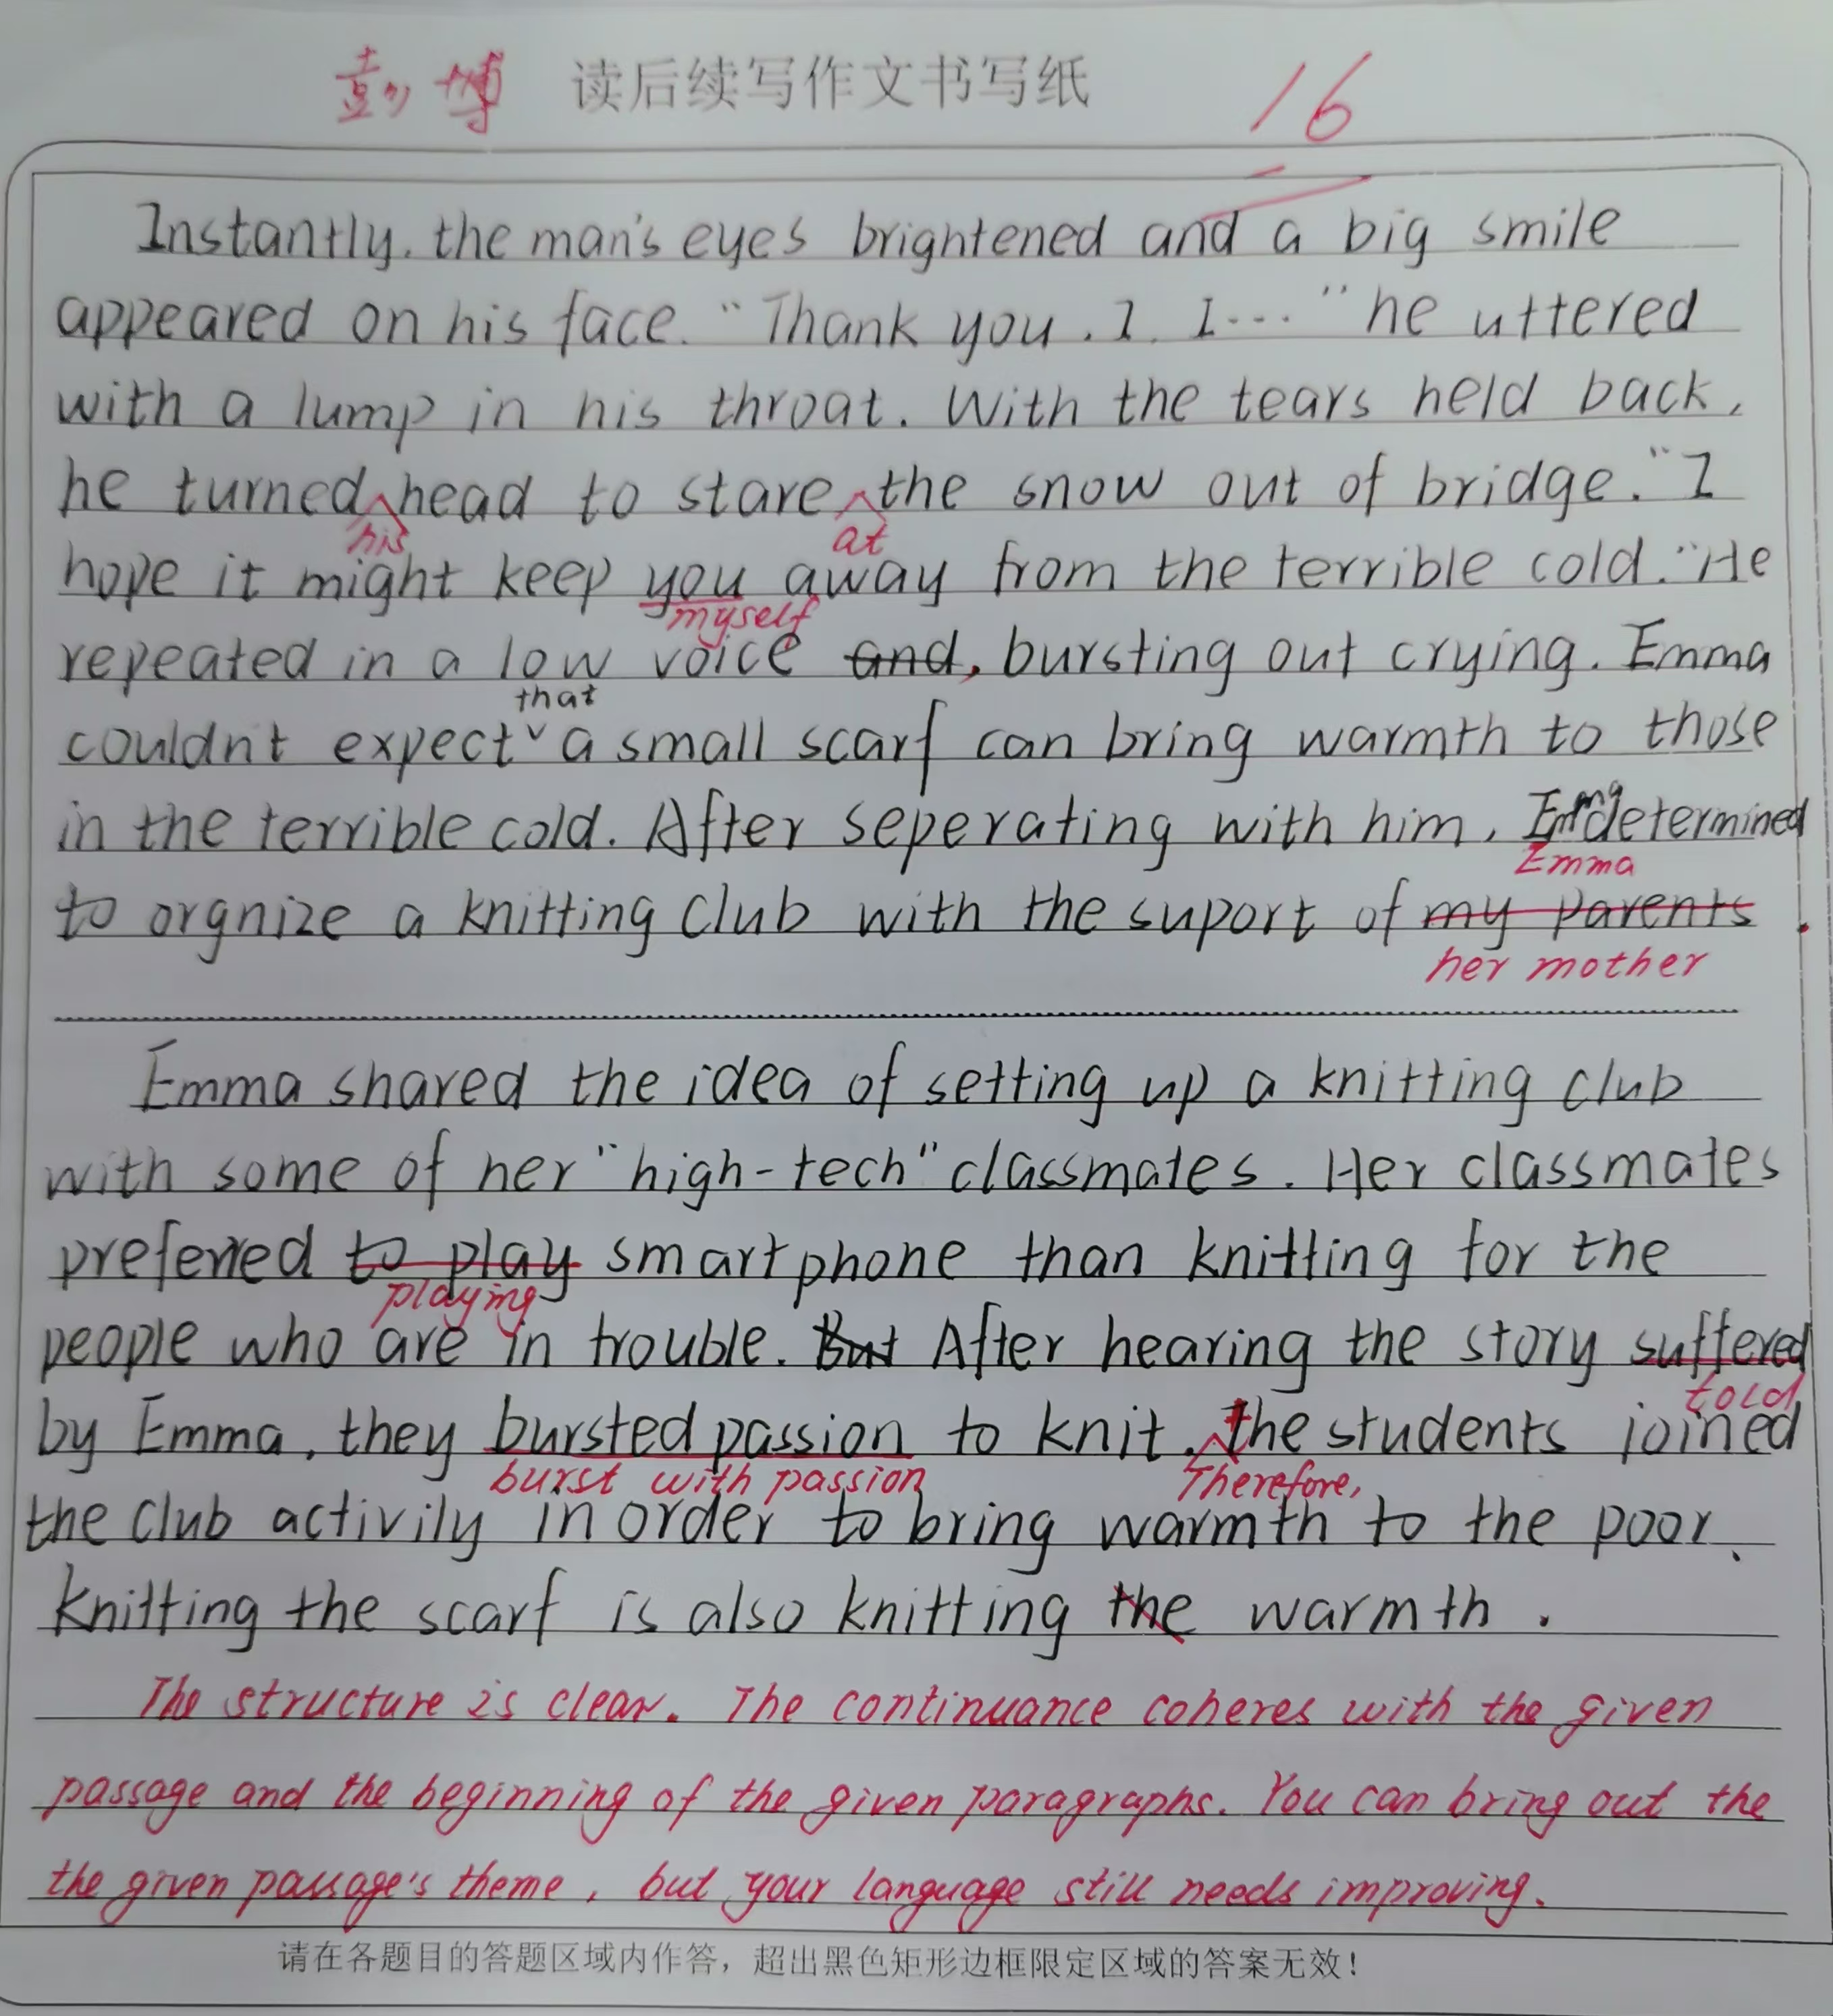 彭博 读后续写作文书写纸 16
Instantly, the man's eyes brightened and a big smile
appeared on his face. "Thank you, I, I..." he uttered
with a lump in his throat. With the tears held back,
he turned head to stare the snow out of bridge. "I
his at
hope it might keep you away from the terrible cold." He
myself
repeated in a low voice and, bursting out crying. Emma
that
couldn't expect a small scarf can bring warmth to those
in the terrible cold. After seperating with him, Emma determined
Emma
to orgnize a knitting club with the suport of my parents.
her mother
Emma shared the idea of setting up a knitting club
with some of her "high-tech" classmates. Her classmates
preferred to play smartphone than knitting for the
playing
people who are in trouble. But After hearing the story suffered
told
by Emma, they bursted passion to knit. the students joined
burst with passion Therefore,
the club activily in order to bring warmth to the poor.
Knitting the scarf is also knitting the warmth.
The structure is clear. The continuance coheres with the given
passage and the beginning of the given paragraphs. You can bring out the
the given passage's theme, but your language still needs improving.
请在各题目的答题区域内作答，超出黑色矩形边框限定区域的答案无效！